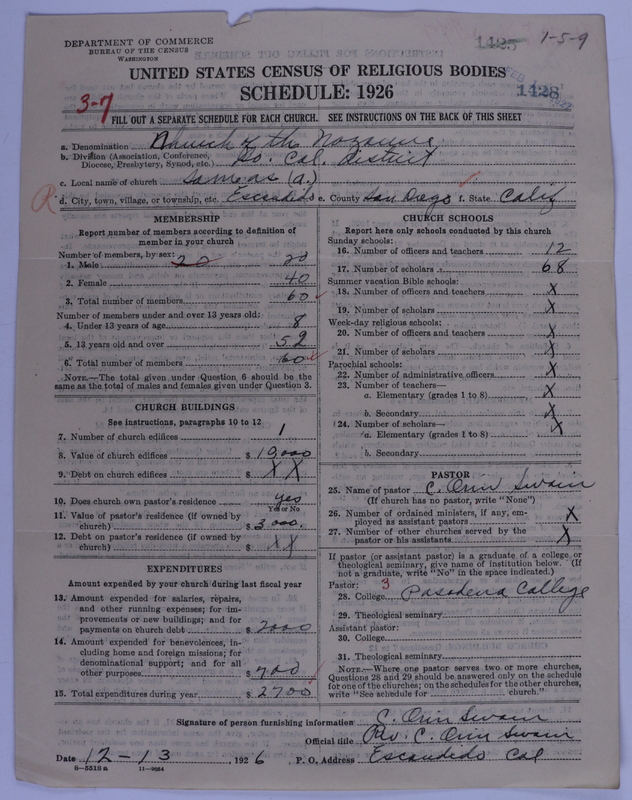 DEPARTMENT OF COMMERCE
BUREAU OF THE CENSUS
WASHINGTON
1425
1-5-9
UNITED STATES CENSUS OF RELIGIOUS BODIES
SCHEDULE: 1926
1428
3-7
FILL OUT A SEPARATE SCHEDULE FOR EACH CHURCH. SEE INSTRUCTIONS ON THE BACK OF THIS SHEET
a. Denomination Church of the Nazarene
b. Division (Association, Conference, Diocese, Presbytery, Synod, etc.) So. Cal. District
c. Local name of church Same as (a.)
d. City, town, village, or township, etc. Escondido e. County San Diego f. State Calif
MEMBERSHIP
Report number of members according to definition of member in your church
Number of members, by sex:
1. Male 20 20
2. Female 40
3. Total number of members 60
Number of members under and over 13 years old:
4. Under 13 years of age 8
5. 13 years old and over 52
6. Total number of members 60
NOTE.—The total given under Question 6 should be the same as the total of males and females given under Question 3.
CHURCH BUILDINGS
See instructions, paragraphs 10 to 12
7. Number of church edifices 1
8. Value of church edifices $ 19,000
9. Debt on church edifices $ X X
10. Does church own pastor's residence yes
Yes or No
11. Value of pastor's residence (if owned by church) $ 3000.
12. Debt on pastor's residence (if owned by church) $ X X
EXPENDITURES
Amount expended by your church during last fiscal year
13. Amount expended for salaries, repairs, and other running expenses; for improvements or new buildings; and for payments on church debt $ 2000
14. Amount expended for benevolences, including home and foreign missions; for denominational support; and for all other purposes $ 700
15. Total expenditures during year $ 2700
CHURCH SCHOOLS
Report here only schools conducted by this church
Sunday schools:
16. Number of officers and teachers 12
17. Number of scholars 68
Summer vacation Bible schools:
18. Number of officers and teachers X
19. Number of scholars X
Week-day religious schools:
20. Number of officers and teachers X
21. Number of scholars X
Parochial schools:
22. Number of administrative officers X
23. Number of teachers—
a. Elementary (grades 1 to 8) X
b. Secondary X
24. Number of scholars—
a. Elementary (grades 1 to 8) X
b. Secondary
PASTOR
25. Name of pastor C. Orin Swain
(If church has no pastor, write "None")
26. Number of ordained ministers, if any, employed as assistant pastors X
27. Number of other churches served by the pastor or his assistants X
If pastor (or assistant pastor) is a graduate of a college or theological seminary, give name of institution below. (If not a graduate, write "No" in the space indicated.)
Pastor: 3
28. College Pasadena College
29. Theological seminary
Assistant pastor:
30. College
31. Theological seminary
NOTE.—Where one pastor serves two or more churches, Questions 28 and 29 should be answered only on the schedule for one of the churches; on the schedules for the other churches, write "See schedule for church."
Signature of person furnishing information C. Orin Swain
Official title Rev. C. Orin Swain
Date 12-13, 1926 P. O. Address Escondido Cal
8-5518a 11-9064